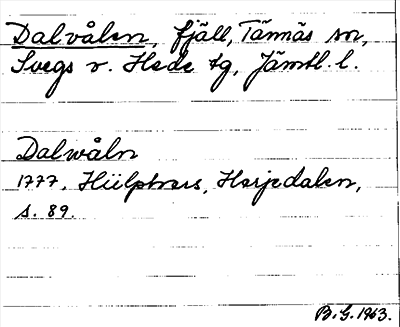 Dalvålen, fjäll, Tännäs sn,
Svegs o. Hede tg, Jämtl. l.
Dalwåln
1777. Hülphers, Herjedalen,
s. 89.
B.G. 1963.